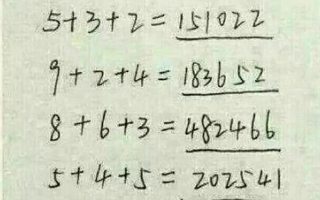 5+3+2=151022
9+2+4=183652
8+6+3=482466
5+4+5=202541